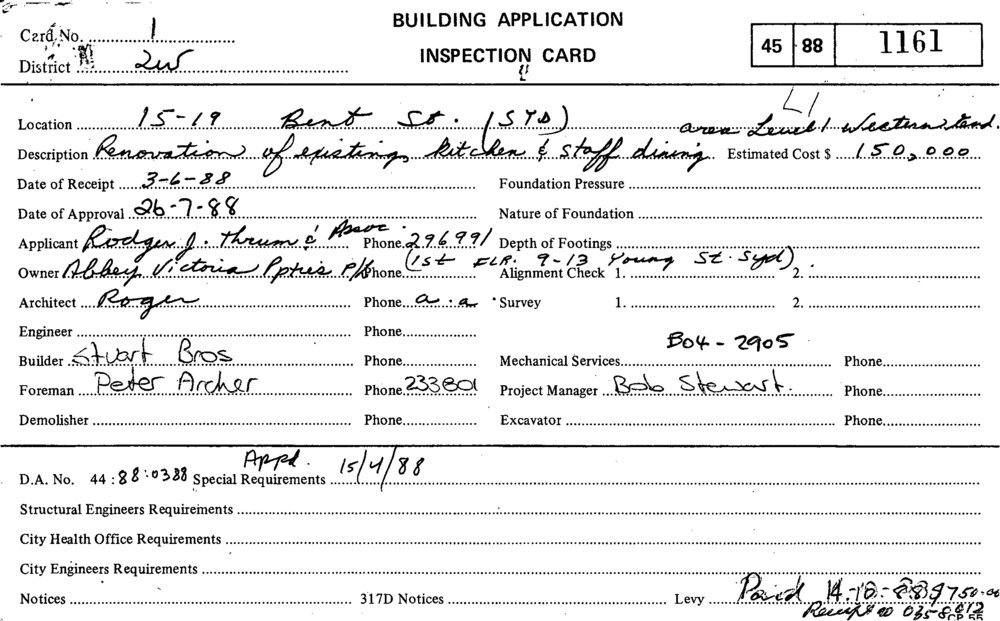 BUILDING APPLICATION
INSPECTION CARD
Card No. 1
District 2W
45 88 1161
L1
Location 15-19 Bent St. (SYD) area Level 1 Western end.
Description Renovation of existing kitchen & staff dining. Estimated Cost $ 150,000
Date of Receipt 3-6-88 Foundation Pressure
Date of Approval 26-7-88 Nature of Foundation
Applicant Rodger J. Thrum & Assoc. Phone 296991 Depth of Footings
Owner Abbey Victoria Ppties P/L Phone (1st FLR. 9-13 Young St. Syd) Alignment Check 1. 2.
Architect Roger Phone a.a. Survey 1. 2.
Engineer Phone
B04-2905
Builder Stuart Bros Phone Mechanical Services Phone
Foreman Peter Archer Phone 233801 Project Manager Bob Stewart. Phone
Demolisher Phone Excavator Phone
D.A. No. 44:88:0388 Special Requirements Appd. 15/4/88
Structural Engineers Requirements
City Health Office Requirements
City Engineers Requirements
Notices 317D Notices Levy Paid 14-10-88 $750-00
Receipt no
CP 55